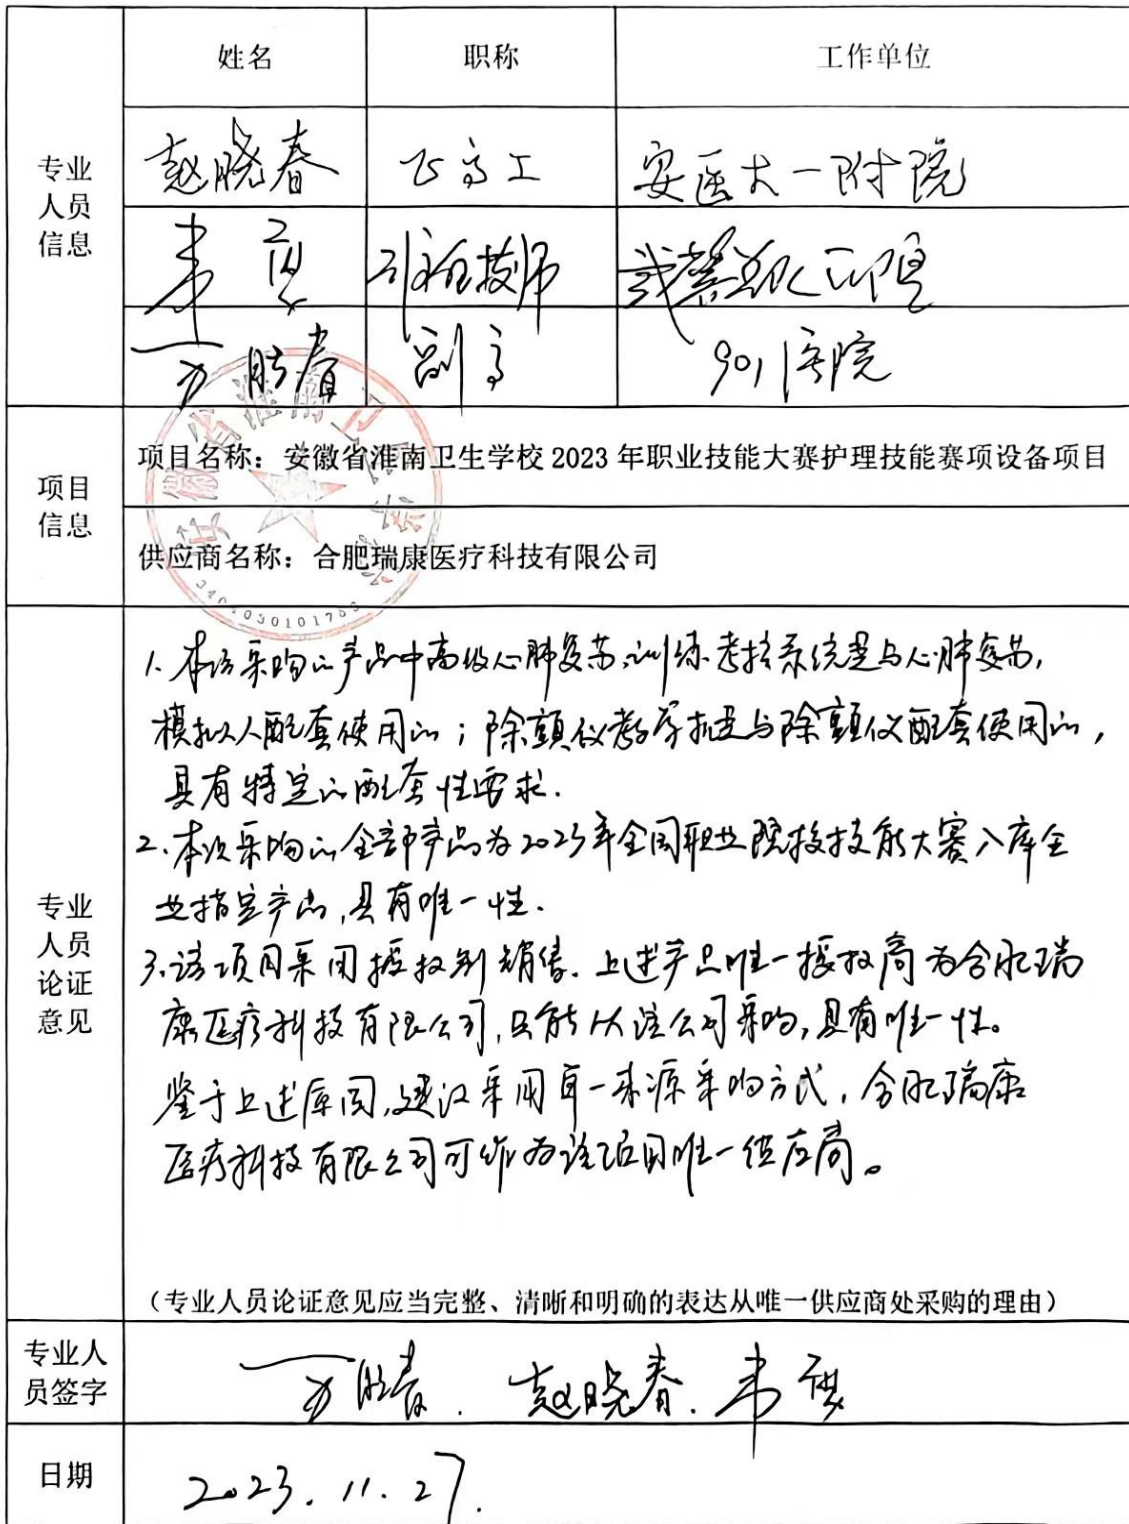 姓名 职称 工作单位
专业人员信息
赵晓春 正高工 安医大一附院
韦
副高 901医院
项目信息
项目名称：安徽省淮南卫生学校 2023 年职业技能大赛护理技能赛项设备项目
供应商名称：合肥瑞康医疗科技有限公司
专业人员论证意见
1. 本次采购的产品中高级心肺复苏、训练考核系统是与心肺复苏，
模拟人配套使用的；除颤仪教学 是与除颤仪配套使用的，
具有特定的配套性要求.
2. 本次采购的全部产品为2023年全国职业院校技能大赛入库企
业指定产品，具有唯一性.
3. 该项目采用授权制销售. 上述产品唯一授权商为合肥瑞
康医疗科技有限公司，只能从该公司采购，具有唯一性。
鉴于上述原因，建议采用单一来源采购方式，合肥瑞康
医疗科技有限公司可作为该项目唯一供应商。
（专业人员论证意见应当完整、清晰和明确的表达从唯一供应商处采购的理由）
专业人员签字
赵晓春. 韦
日期
2023. 11. 27.